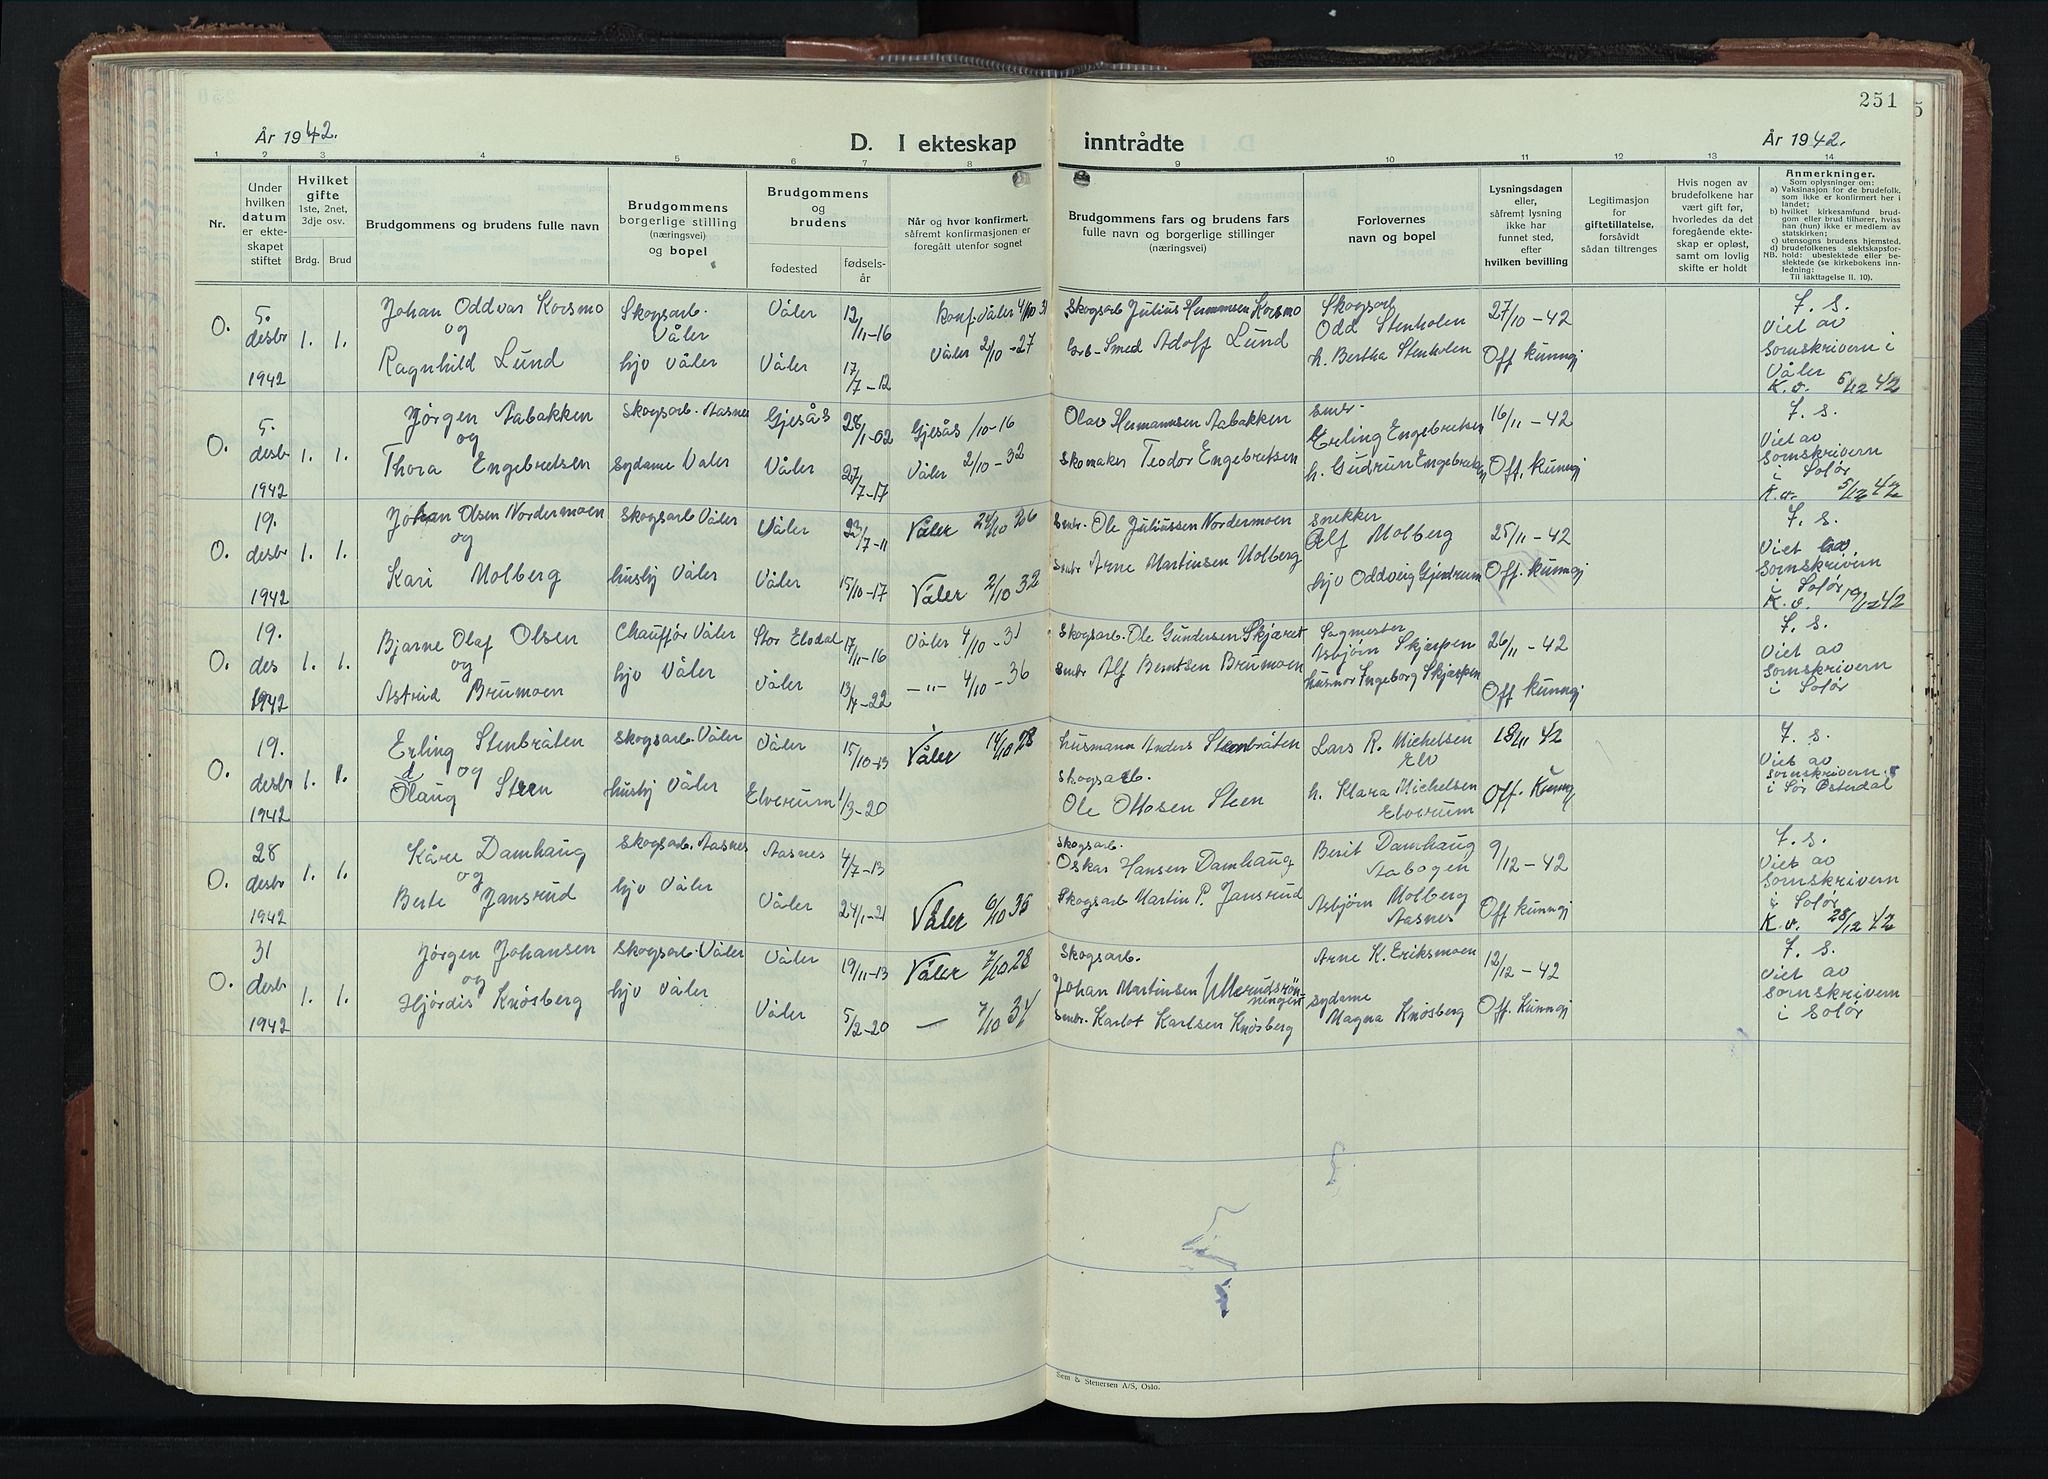 251
År 1942.
D. I ekteskap
inntrådte
År 1942.
1 2 3 4 5 6 7 8 9 10 11 12 13 14
Nr.
Under hvilken datum er ekteskapet stiftet
Hvilket gifte
1ste, 2net, 3dje osv.
Brdg. Brud
Brudgommens og brudens fulle navn
Brudgommens borgerlige stilling (næringsvei) og bopel
Brudgommens og brudens
fødested
fødselsår
Når og hvor konfirmert, såfremt konfirmasjonen er foregått utenfor sognet
Brudgommens fars og brudens fars fulle navn og borgerlige stillinger (næringsvei)
Forlovernes navn og bopel
Lysningsdagen eller, såfremt lysning ikke har funnet sted, efter hvilken bevilling
Legitimasjon for giftetillatelse, forsåvidt sådan tiltrenges
Hvis nogen av brudefolkene har vært gift før, hvorledes da det foregående ekteskap er opløst, samt om lovlig skifte er holdt
Anmerkninger.
Som oplysninger om:
a) Vaksinasjon for de brudefolk, som ikke er konfirmert her i landet;
b) hvilket kirkesamfund brudgom eller brud tilhører, hviss han (hun) ikke er medlem av statskirken;
c) utensogns brudens hjemsted.
d) brudefolkenes slektskapsforhold: ubeslektede eller beslektede (se kirkebokens innledning:
NB. Til iakttagelse II. 10).
O. 5. desbr 1942 1. 1. Johan Oddvar Korsmo Skogsarb. Våler Våler 12/11-16 konf. Våler 4/10 31 Skogsarb Julius Hermansen Korsmo Skogsarb Odd Stenholen 27/10-42 F. S.
og
Ragnhild Lund hjv Våler Våler 17/7-12 Våler 2/10-27 Grb-Smed Adolf Lund h. Bertha Stenholen Off kunngj Viet av Sornskrivern i Våler
K. v. 5/12 42
O. 5. desbr 1942 1. 1. Jørgen Aabakken Skogsarb. Aasnes Gjesås 28/1-02 Gjesås /10-16 Olav Hermannsen Aabakken Smbr- Erling Engebretsen 16/11-42 F. S.
og
Thora Engebretsen Sydame Våler Våler 27/7-17 Våler 2/10-32 Skomaker Teodor Engebretsen h. Gudrun Engebretsen Off. kunngj Viet av Sornskrivern i Solør
K.v. 5/12 42
O. 19. desbr 1942 1. 1. Johan Olsen Nordermoen Skogsarb Våler Våler 23/7-11 Våler 24/10 26 Smbr. Ole Juliussen Nordermoen Snekker Alf Molberg 25/11-42 F. S.
og
Kari Molberg husbj Våler Våler 15/10-17 Våler 2/10 32 Smbr Arne Martinsen Molberg hjv Oddveig Gjendrum Off. kunngj Viet av Sornskrivern i Solør
K. v. 19/12 42
O. 19. des 1942 1. 1. Bjarne Olaf Olsen Chauffør Våler Stor Elvdal 17/11-16 Våler 4/10-31 Skogsarb. Ole Gundersen Skjæret Sagmester Asbjørn Skjæspen 26/11-42 F. S.
og
Astrid Brumoen hjv Våler Våler 13/4-22 -"- 4/10-36 Smbr Alf Berntsen Brumoen husmor Ingeborg Skjæspen Off kunngj Viet av Sornskrivern i Solør
O. 19. desbr 1942 1. 1. Erling Stenbråten Skogsarb. Våler Våler 15/10-13 Våler 14/10 28 husmann Anders Stenbråten Lars R. Michelsen Elv 18/11 42 F. S.
og
Olaug Steen husbj Våler Elverum 1/3-20 Skogsarb. Ole Ottosen Steen h. Klara Michelsen Elverum Off. Kunngj Viet av Sornskrivern i Sør Østerdal
O. 28 desbr 1942 1. 1. Kåre Damhaug Skogsarb. Aasnes Aasnes 4/7-13 Skogsarb. Oskar Hansen Damhaug Berit Damhaug Aabogen 9/12-42 F. S.
og
Berte Jansrud hjv Våler Våler 24/1-21 Våler 6/10 35 Skogsarb Martin P. Jansrud Asbjørn Molberg Aasnes Off kunngj Viet av Sornskrivern i Solør
K. v. 28/12 42
O. 31 desbr 1942 1. 1. Jørgen Johansen Skogsarb. Våler Våler 19/11-13 Våler 7/10 28 Skogsarb. Johan Martinsen Arne K. Eriksmoen 12/12-42 F. S.
og
Hjørdis Knøsberg hjv Våler Våler 5/2-20 — 7/10 34 Smbr. Karlot Karlsen Knøsberg Sydame Magna Knøsberg Off. Kunngj Viet av Sornskrivern i Solør
Sem & Stenersen A/S, Oslo.